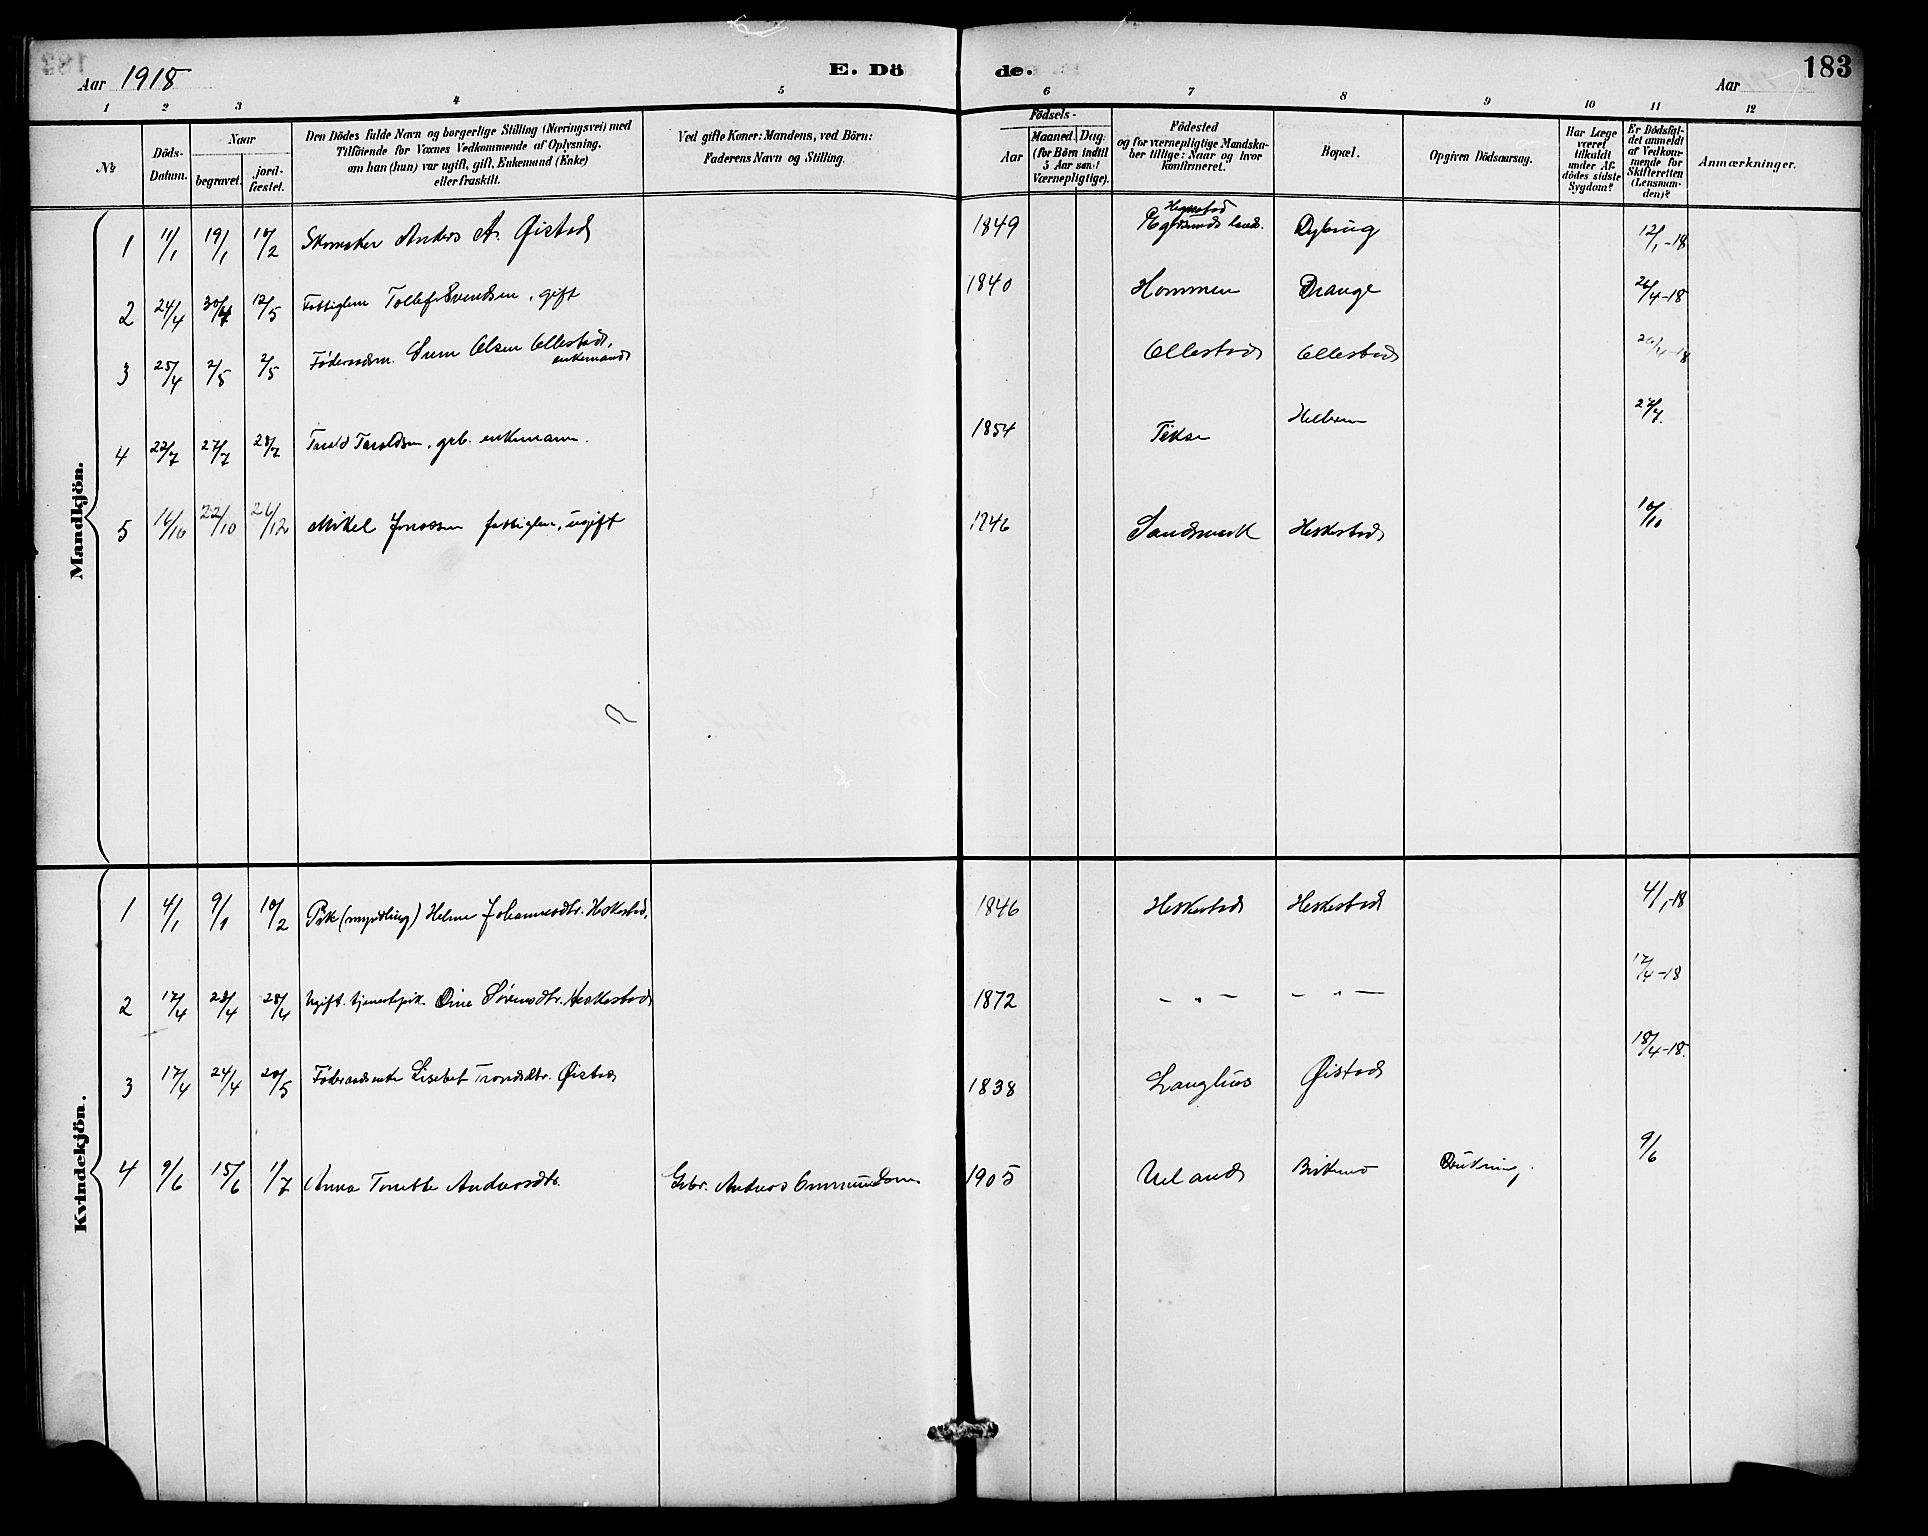 Aar 1918 E. Dö de. Aar 183
1 2 3 4 5 6 7 8 9 10 11 12
№ Döds-Datum. Naar begravet. jord-fæstet. Den Dödes fulde Navn og borgerlige Stilling (Næringsvei) med Tilföiende for Voxnes Vedkommende af Oplysning, om han (hun) var ugift, gift, Enkemand (Enke) eller fraskilt. Ved gifte Koner: Mandens, ved Börn: Faderens Navn og Stilling. Födsels- Aar Maaned. Dag. (for Börn indtil 5 Aar samt Værnepligtige). Födested og for værnepligtige Mandskaber tillige: Naar og hvor konfirmeret. Bopæl. Opgiven Dödsaarsag. Har Læge været tilkaldt under Afdödes sidste Sygdom? Er Dödsfaldet anmeldt af Vedkommende for Skifteretten (Lensmanden)? Anmærkninger.
Mandkjön.
Hegnestad
1 11/1 19/1 10/2 Skomaker Anders A. Øistad 1849 Egersunds Lands. Dybing 12/1-18
2 24/4 30/4 12/5 Fattiglem Tollef Svendsen, gift 1840 Hommen Drange 26/4-18
3 25/4 2/5 2/5 Føderaadsm. Sven Olsen Ollestad, Ollestad Ollestad 26/4-18
enkemand
4 22/7 27/7 28/7 Tarald Taraldsen, grb. enkemann. 1854 Tekse 27/7.
5 16/10 22/10 26/12 Mikel Jonassen fattiglem, ugift 1846 Sandsmark Heskestad 10/10
Kvindekjön.
1 4/1 9/1 10/2 Pike (myndling) Helene Johannesdtr. Heskestad, 1846 Heskestad Heskestad 4/1-18
2 17/4 23/4 28/4 Ugift tjenestepik. Oine Sørensdtr. Heskestad 1872 – " – – " – 17/4-18
3 17/4 24/4 20/5 Føderaadsenke Lisebet Trondsdtr. Øistad 1838 Langhus Øistad 18/4-18.
4 9/6 15/6 1/7 Anna Tonette Andersdtr. Gbr. Anders Ommundsen 1905 Ueland Birkemo Drukning. 9/6